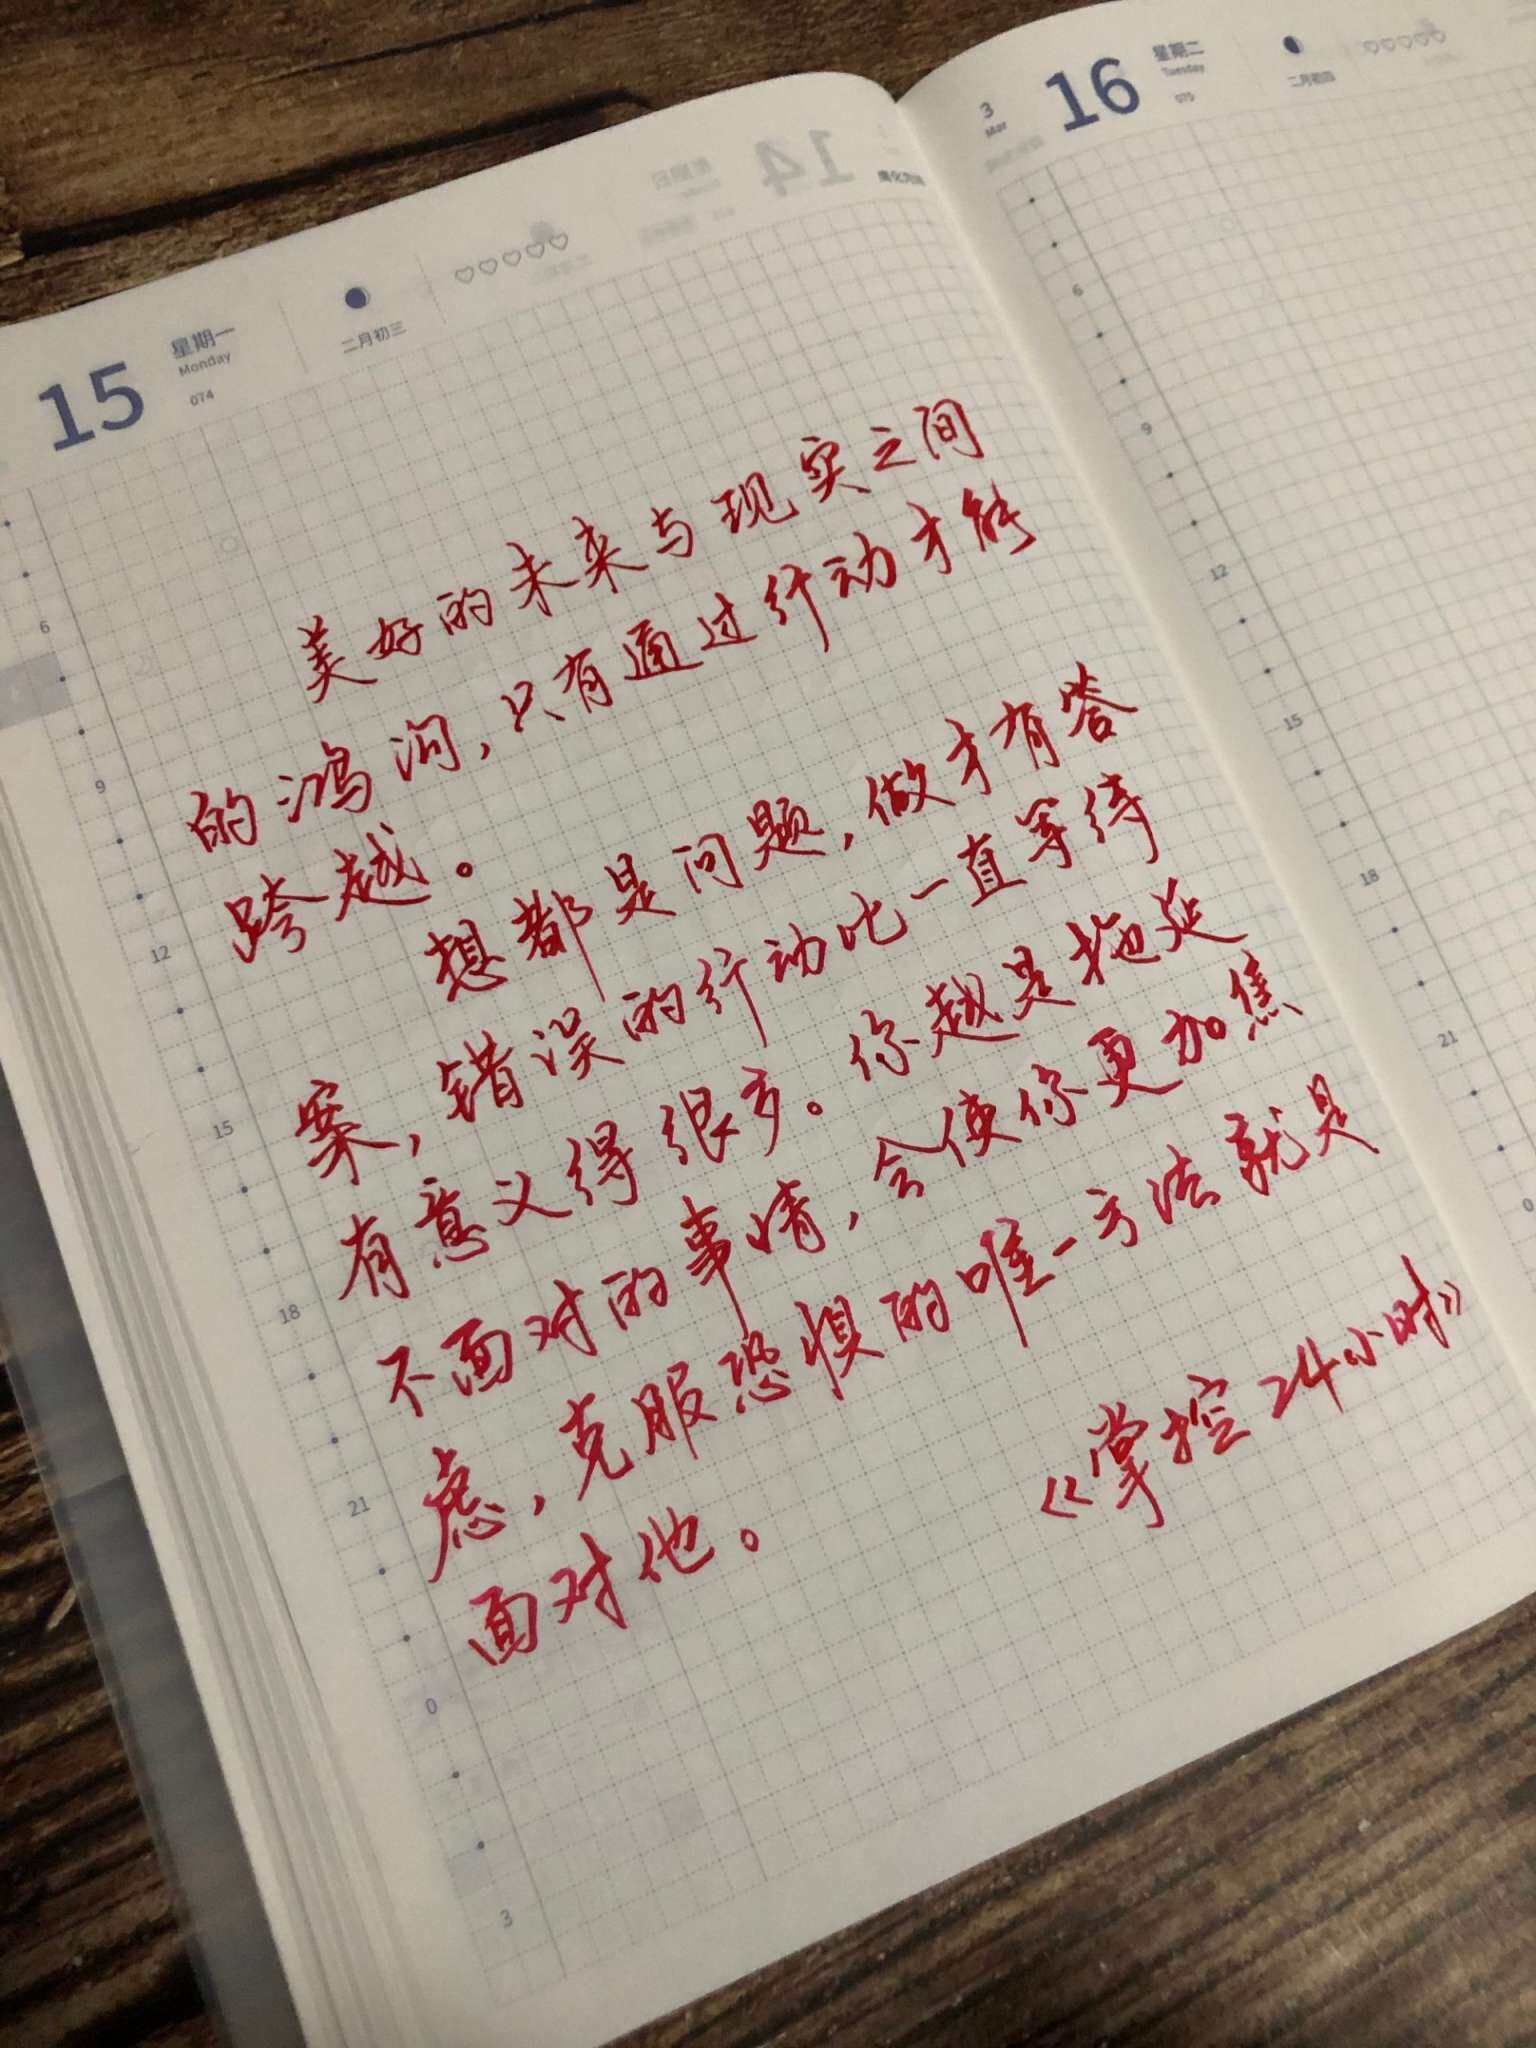 15
星期一
Monday
074
二月初三
美好的未来与现实之间
的鸿沟，只有通过行动才能
跨越。
想都是问题，做才有答
案，错误的行动比一直等待
有意义得很多。你越是拖延
不面对的事情，会使你更加焦
虑，克服恐惧的唯一方法就是
面对他。
《掌控24小时》
6
9
12
15
18
21
0
3
3
Mar
16
星期二
Tuesday
075
二月初四
6
9
12
15
18
21
0